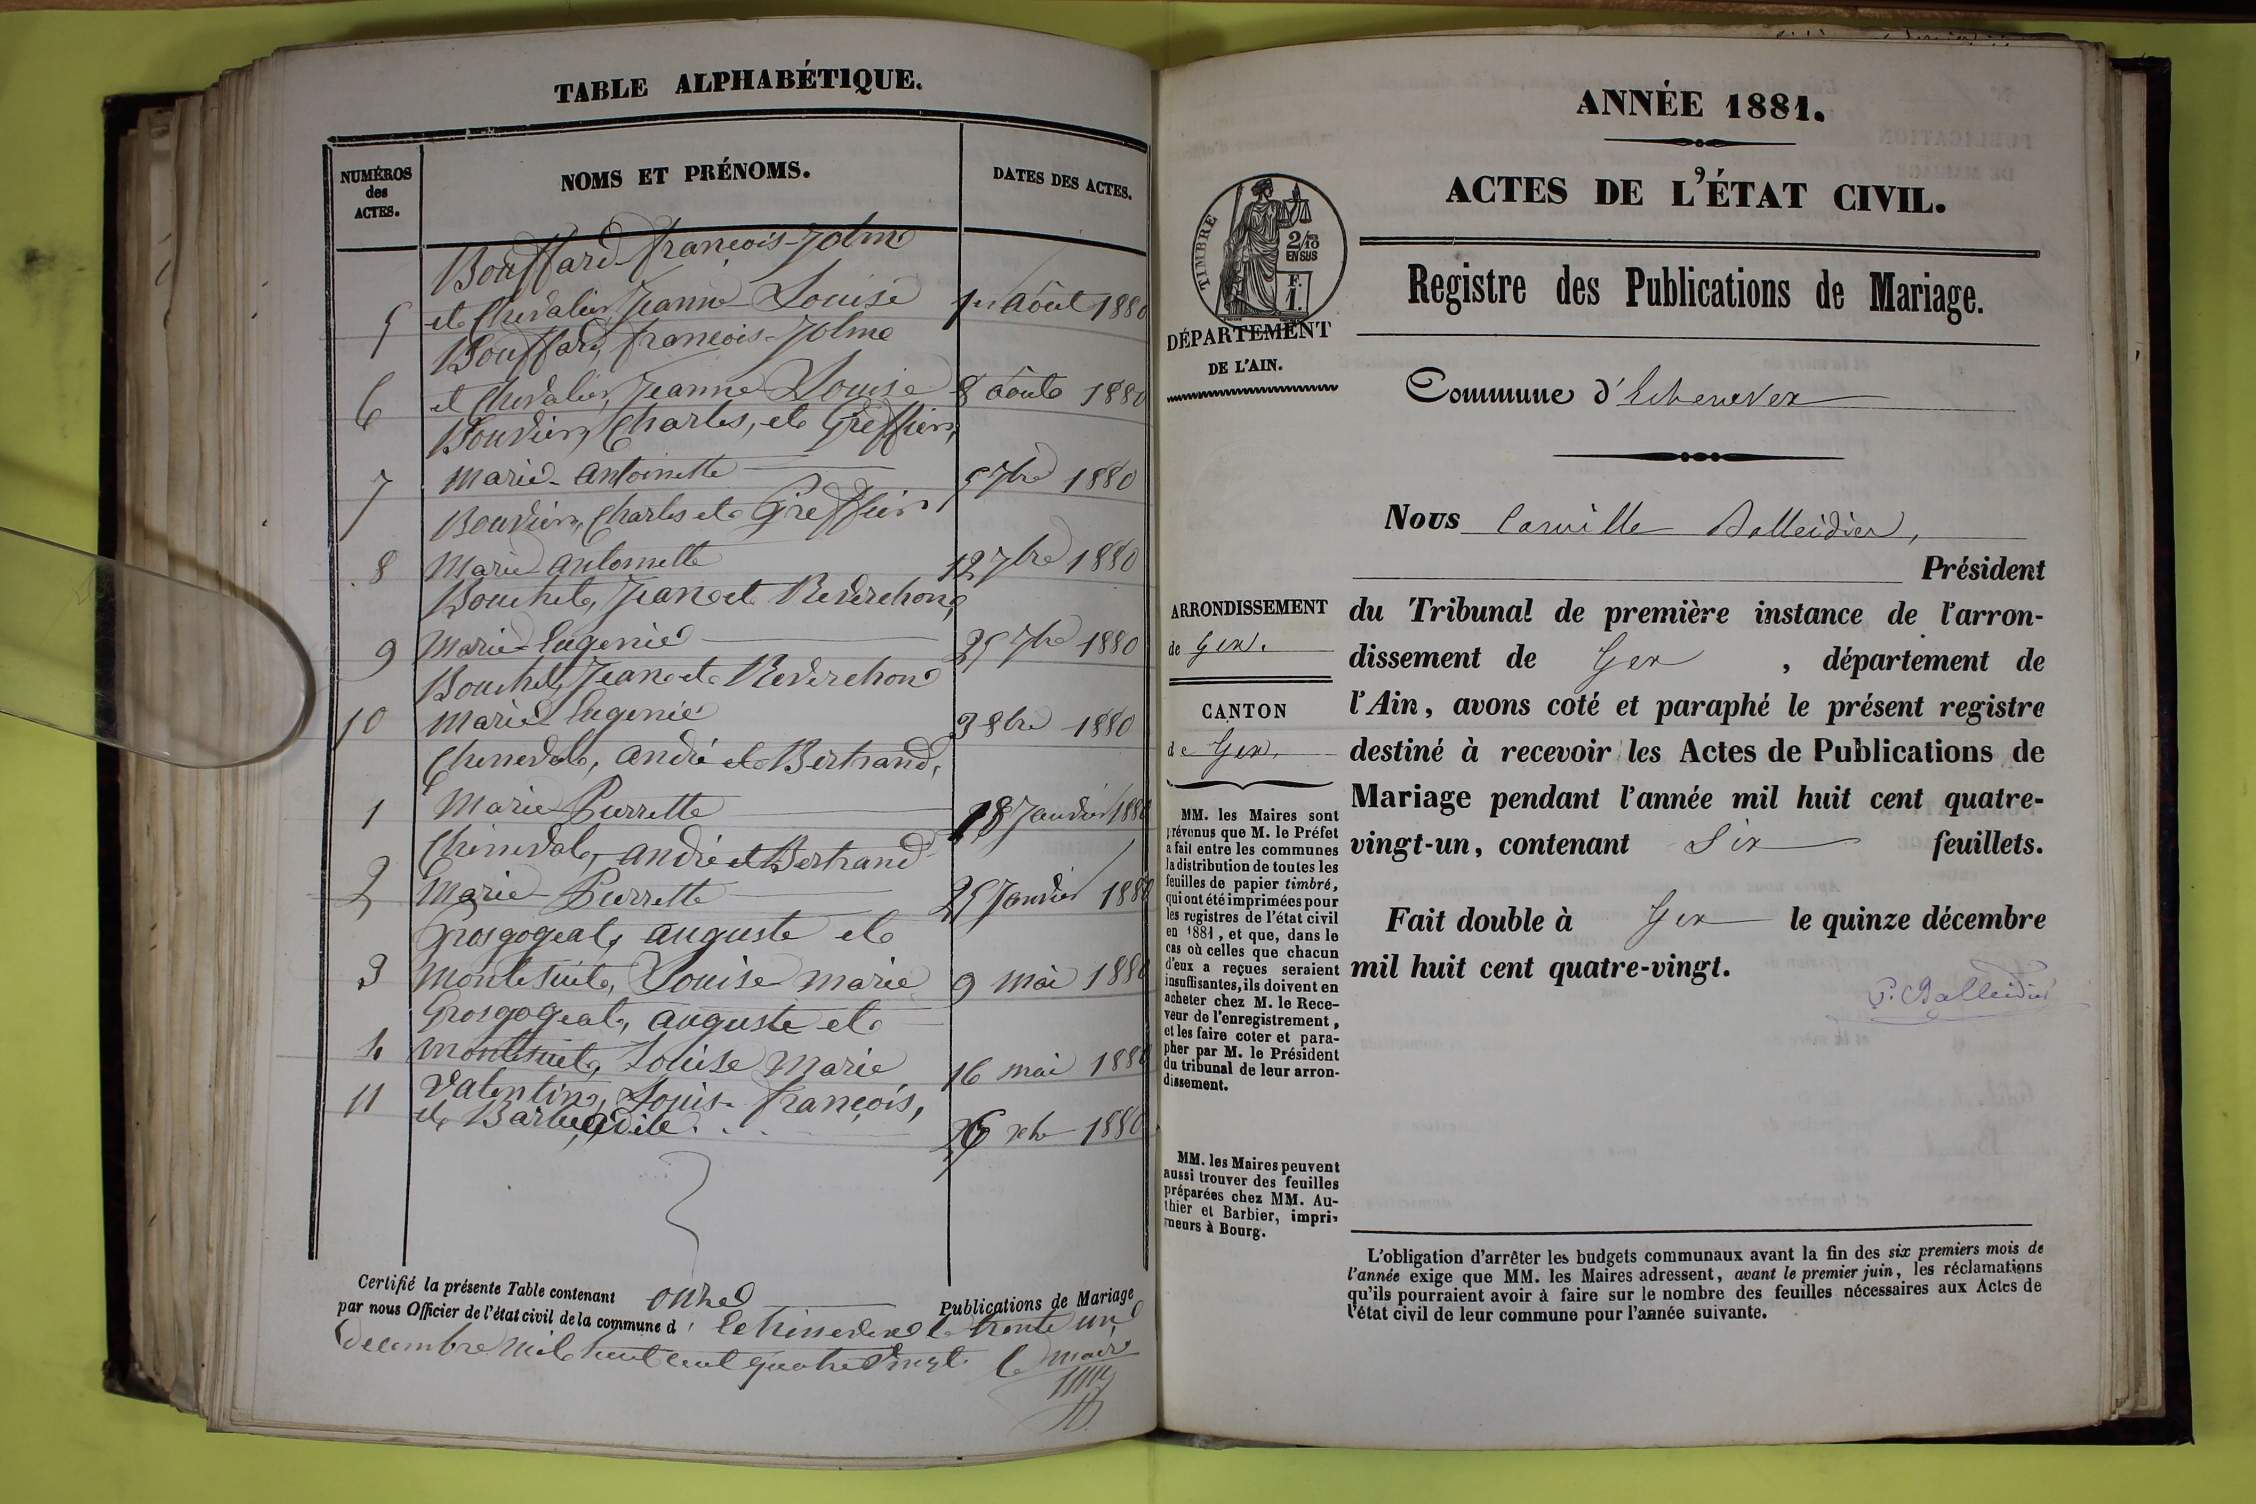 TABLE ALPHABÉTIQUE.
NUMÉROS
des
ACTES.
NOMS ET PRÉNOMS.
DATES DES ACTES.
Bouffard François-Jolme
5 et Chevalier, Jeanne Louise 1er Août 1880
Bouffard, François-Jolme
6 et Chevalier, Jeanne Louise 8 août 1880
Bouvier, Charles, et Greffier,
7 Marie-Antoinette 5 7bre 1880
Bouvier, Charles et Greffier
8 Marie Antoinette 12 7bre 1880
Bouchet, Jean et Reverchon,
9 Marie-Eugenie 25 7bre 1880
Bouchet, Jean et Reverchon
10 Marie Eugenie 3 8bre 1880
Cheneval, André et Bertrand,
1 Marie Perrette 18 Janvier 1880
Cheneval, André et Bertrand
2 Marie Perrette 25 Janvier 1880
Grosgogeat, Auguste et
3 Montesuit, Louise Marie 9 mai 1880
Grosgogeat, Auguste et
4 Montesuit, Louise Marie 16 mai 1880
11 Valentin, Louis-François,
et Barbe, 26 xbre 1880
Certifié la présente Table contenant onze Publications de Mariage
par nous Officier de l'état civil de la commune d' Echenevex le trente un
décembre mil huit cent quatre vingt. le maire
ANNÉE 1881.
ACTES DE L'ÉTAT CIVIL.
TIMBRE
2/10 EN SUS
F. 1.
DÉPARTEMENT
DE L'AIN.
Registre des Publications de Mariage.
Commune d'Echenevex
ARRONDISSEMENT
de Gex.
CANTON
de Gex.
MM. les Maires sont
prévenus que M. le Préfet
a fait entre les communes
la distribution de toutes les
feuilles de papier timbré,
qui ont été imprimées pour
les registres de l'état civil
en 1881, et que, dans le
cas où celles que chacun
d'eux a reçues seraient
insuffisantes, ils doivent en
acheter chez M. le Rece-
veur de l'enregistrement,
et les faire coter et para-
pher par M. le Président
du tribunal de leur arron-
dissement.
MM. les Maires peuvent
aussi trouver des feuilles
préparées chez MM. Au-
thier et Barbier, impri-
meurs à Bourg.
Nous Camille Balleidier,
Président
du Tribunal de première instance de l'arron-
dissement de Gex, département de
l'Ain, avons coté et paraphé le présent registre
destiné à recevoir les Actes de Publications de
Mariage pendant l'année mil huit cent quatre-
vingt-un, contenant Six feuillets.
Fait double à Gex le quinze décembre
mil huit cent quatre-vingt.
C. Balleidier
L'obligation d'arrêter les budgets communaux avant la fin des six premiers mois de
l'année exige que MM. les Maires adressent, avant le premier juin, les réclamations
qu'ils pourraient avoir à faire sur le nombre des feuilles nécessaires aux Actes de
l'état civil de leur commune pour l'année suivante.